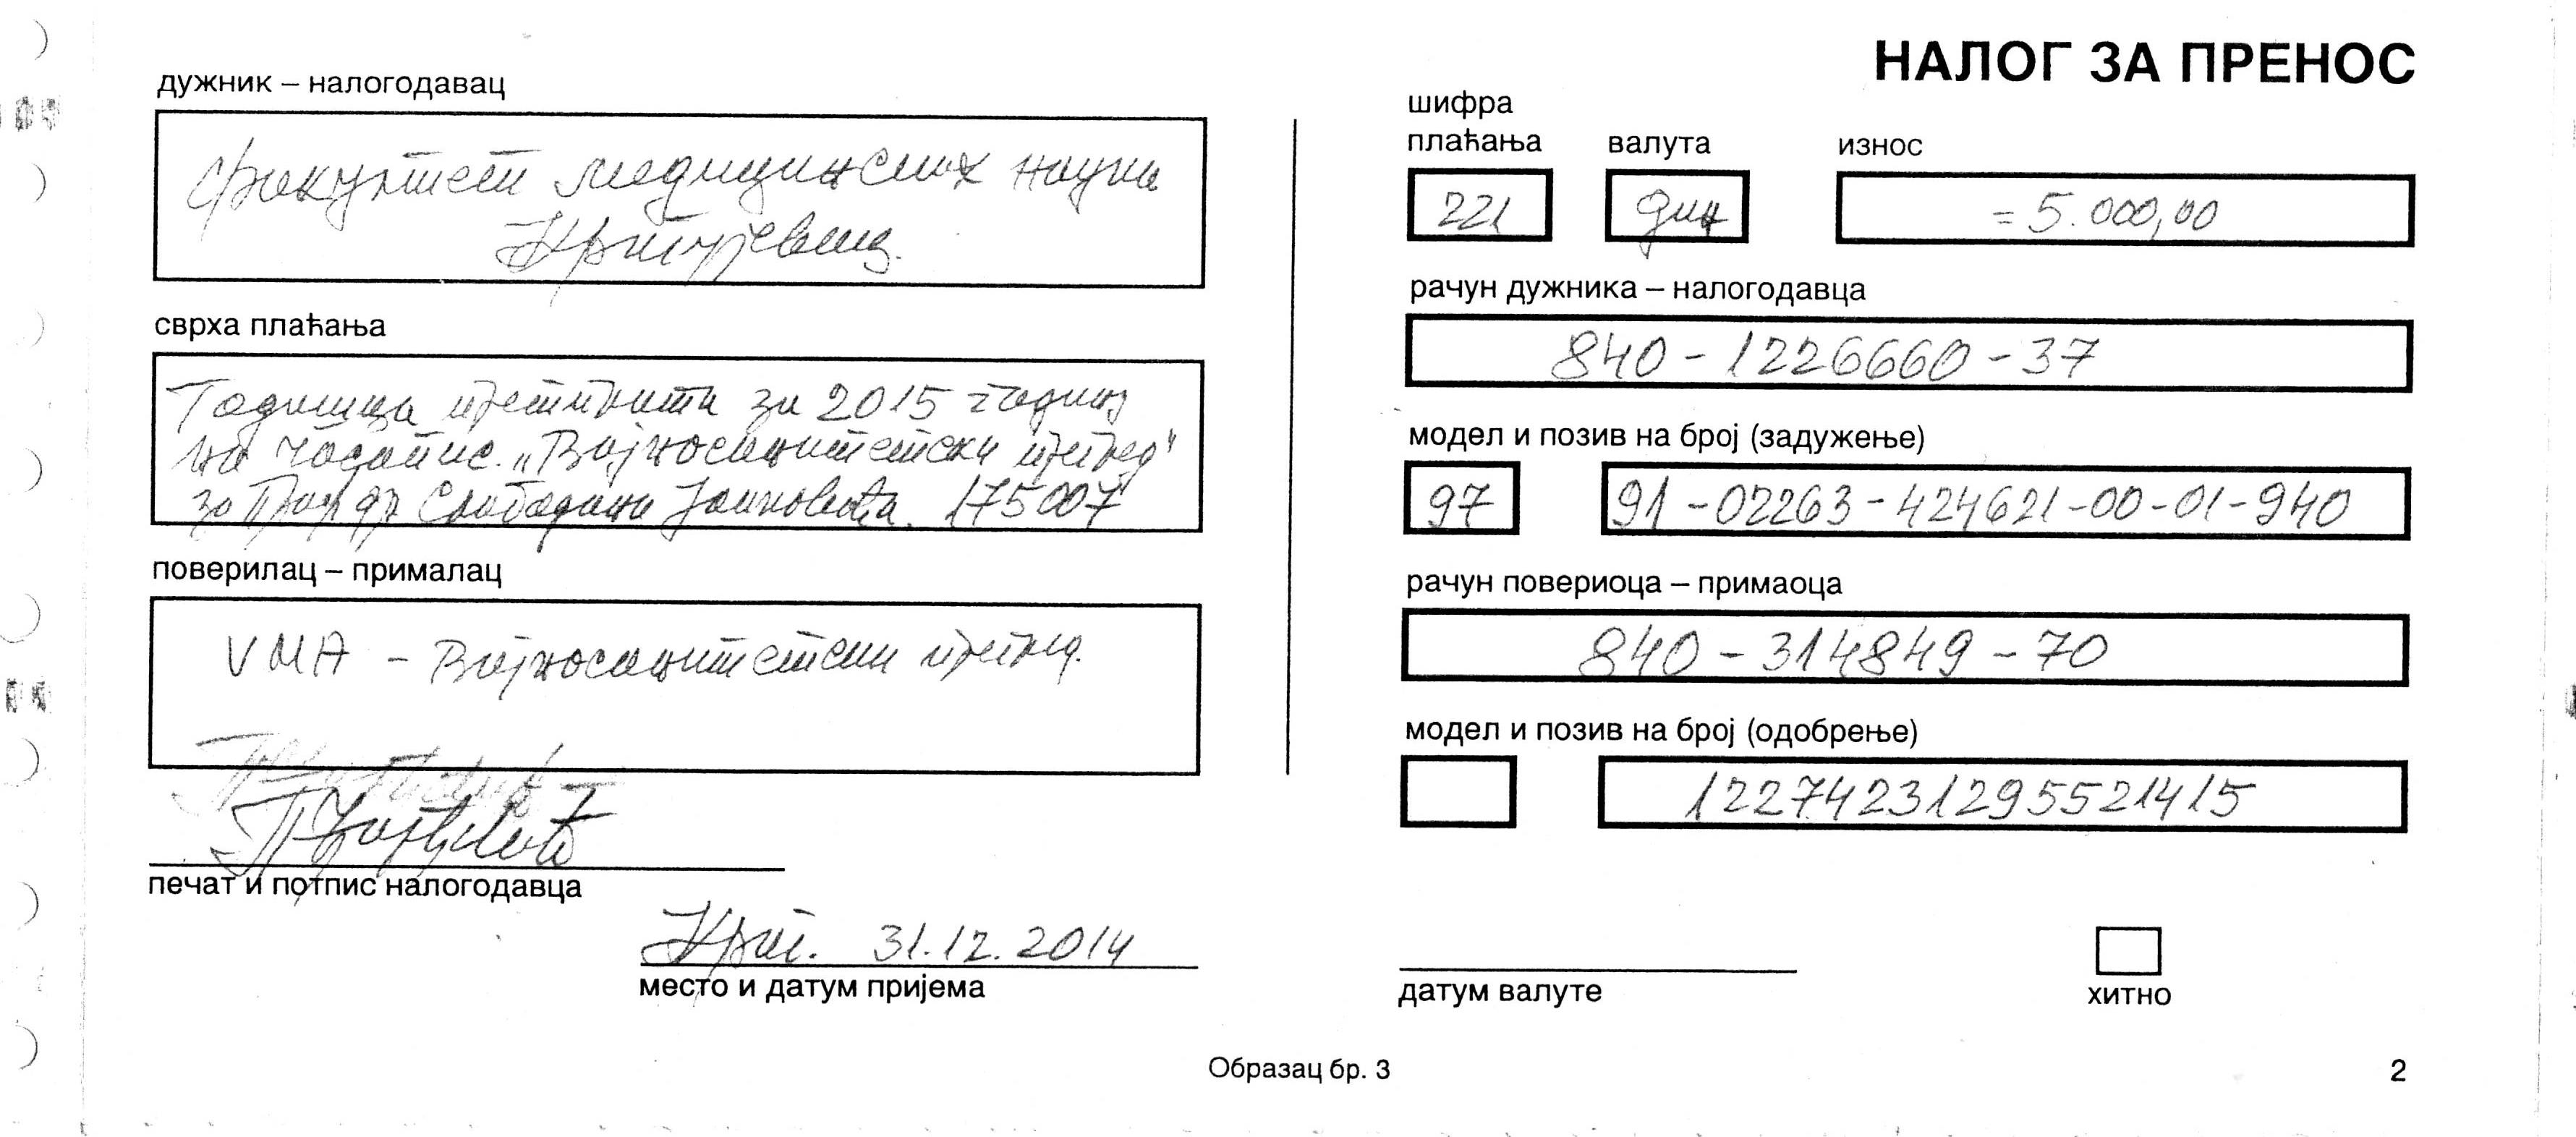 НАЛОГ ЗА ПРЕНОС
дужник – налогодавац
Факултет медицинских наука
Крагујевац.
сврха плаћања
Годишња претплата за 2015 годину
на часопис „Војносанитетски преглед"
за Проф др Слободана Јанковића. 175007
поверилац – прималац
VMA – Војносанитетски преглед.
печат и потпис налогодавца
Краг. 31.12.2014
место и датум пријема
шифра
плаћања
валута
износ
221
дин
= 5.000,00
рачун дужника – налогодавца
840 - 1226660 - 37
модел и позив на број (задужење)
97
91 - 02263 - 424621 - 00 - 01 - 940
рачун повериоца – примаоца
840 - 314849 - 70
модел и позив на број (одобрење)
12274231295521415
датум валуте
хитно
Образац бр. 3
2